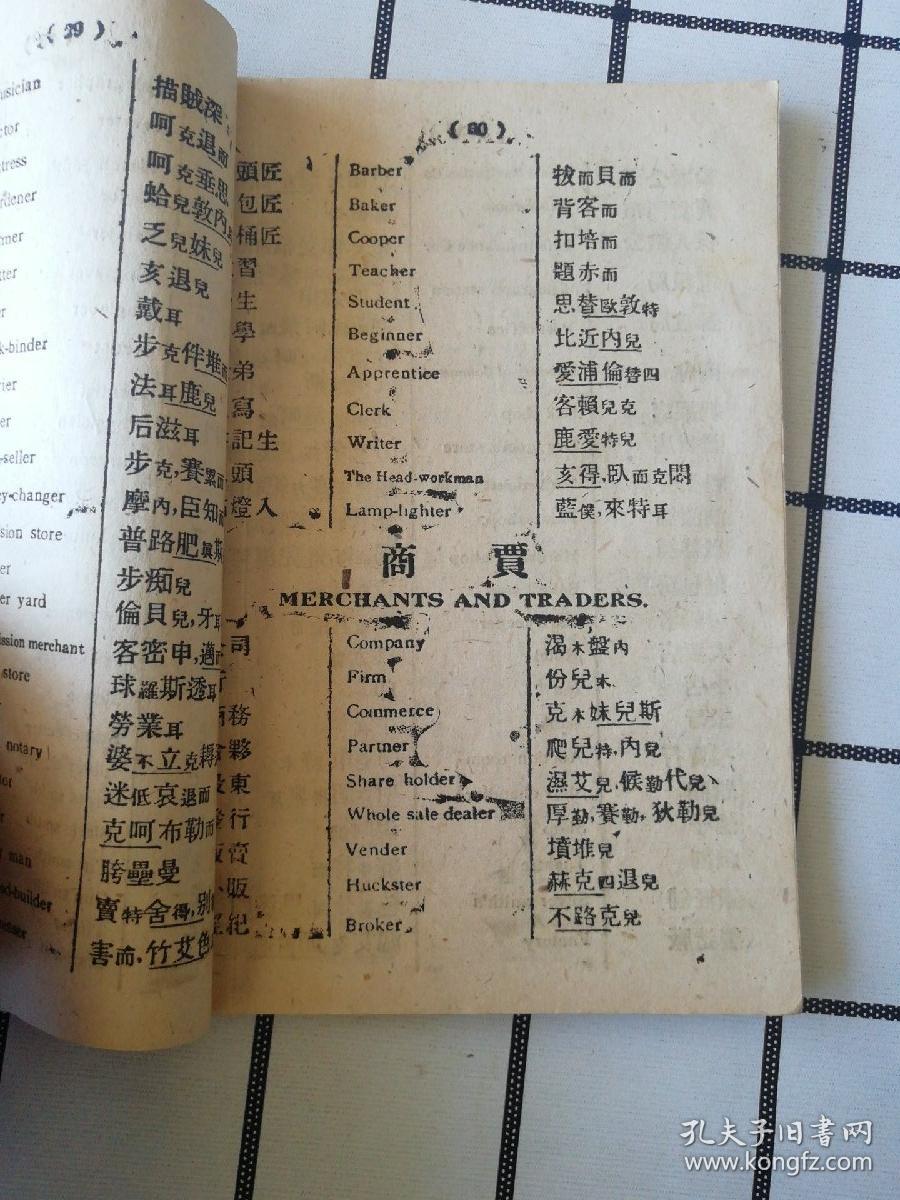 (39)
usician 描賊深
ctor 呵克退而
tress 呵克垂思
rdener 蛤兒敦内
mer 乏兒妹兒
tter 亥退兒
戴耳
k-binder 步克伴堆
rier 法耳鹿兒
er 后滋耳
-seller 步克,賽累
ey-changer 摩内,臣知
sion store 普路肥眞斯
er 步痴兒
er yard 倫貝兒,牙
ission merchant 客密申,邁
store 球羅斯透耳
勞業耳
notary 婆不立克
tor 迷低哀退而
克呵布勒而
man 胯壘曼
d-builder 賣特舍得,别
enser 害而,竹艾色
(80)
頭匠 Barber 拔而貝而
包匠 Baker 背客而
桶匠 Cooper 扣培而
習 Teacher 題赤而
生 Student 思替歐敦特
學 Beginner 比近内兒
弟 Apprentice 愛浦倫替四
寫 Clerk 客賴兒克
記生 Writer 鹿愛特兒
頭 The Head-workman 亥得,臥而克悶
燈人 Lamp-lighter 藍僕,來特耳
商賈
MERCHANTS AND TRADERS.
司 Company 渴木盤内
Firm 份兒木
務 Commerce 克木妹兒斯
夥 Partner 爬兒特,内兒
東 Share holder 濕艾兒,候勒代兒
行 Whole sale dealer 厚勤,賽勤,狄勒兒
賣 Vender 墳堆兒
販 Huckster 赫克四退兒
紀 Broker 不路克兒
孔夫子旧书网
www.kongfz.com